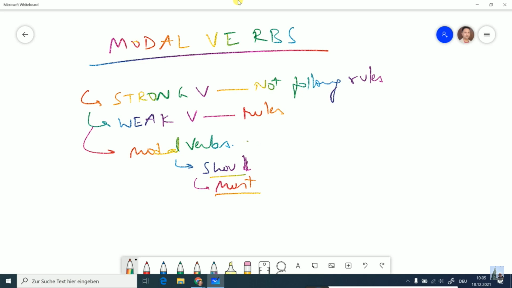 Microsoft Whiteboard
MODAL VERBS
STRONG V — Not following rules
WEAK V — rules
modal verbs.
Should
Must
Zur Suche Text hier eingeben
DEU
18.12.2021